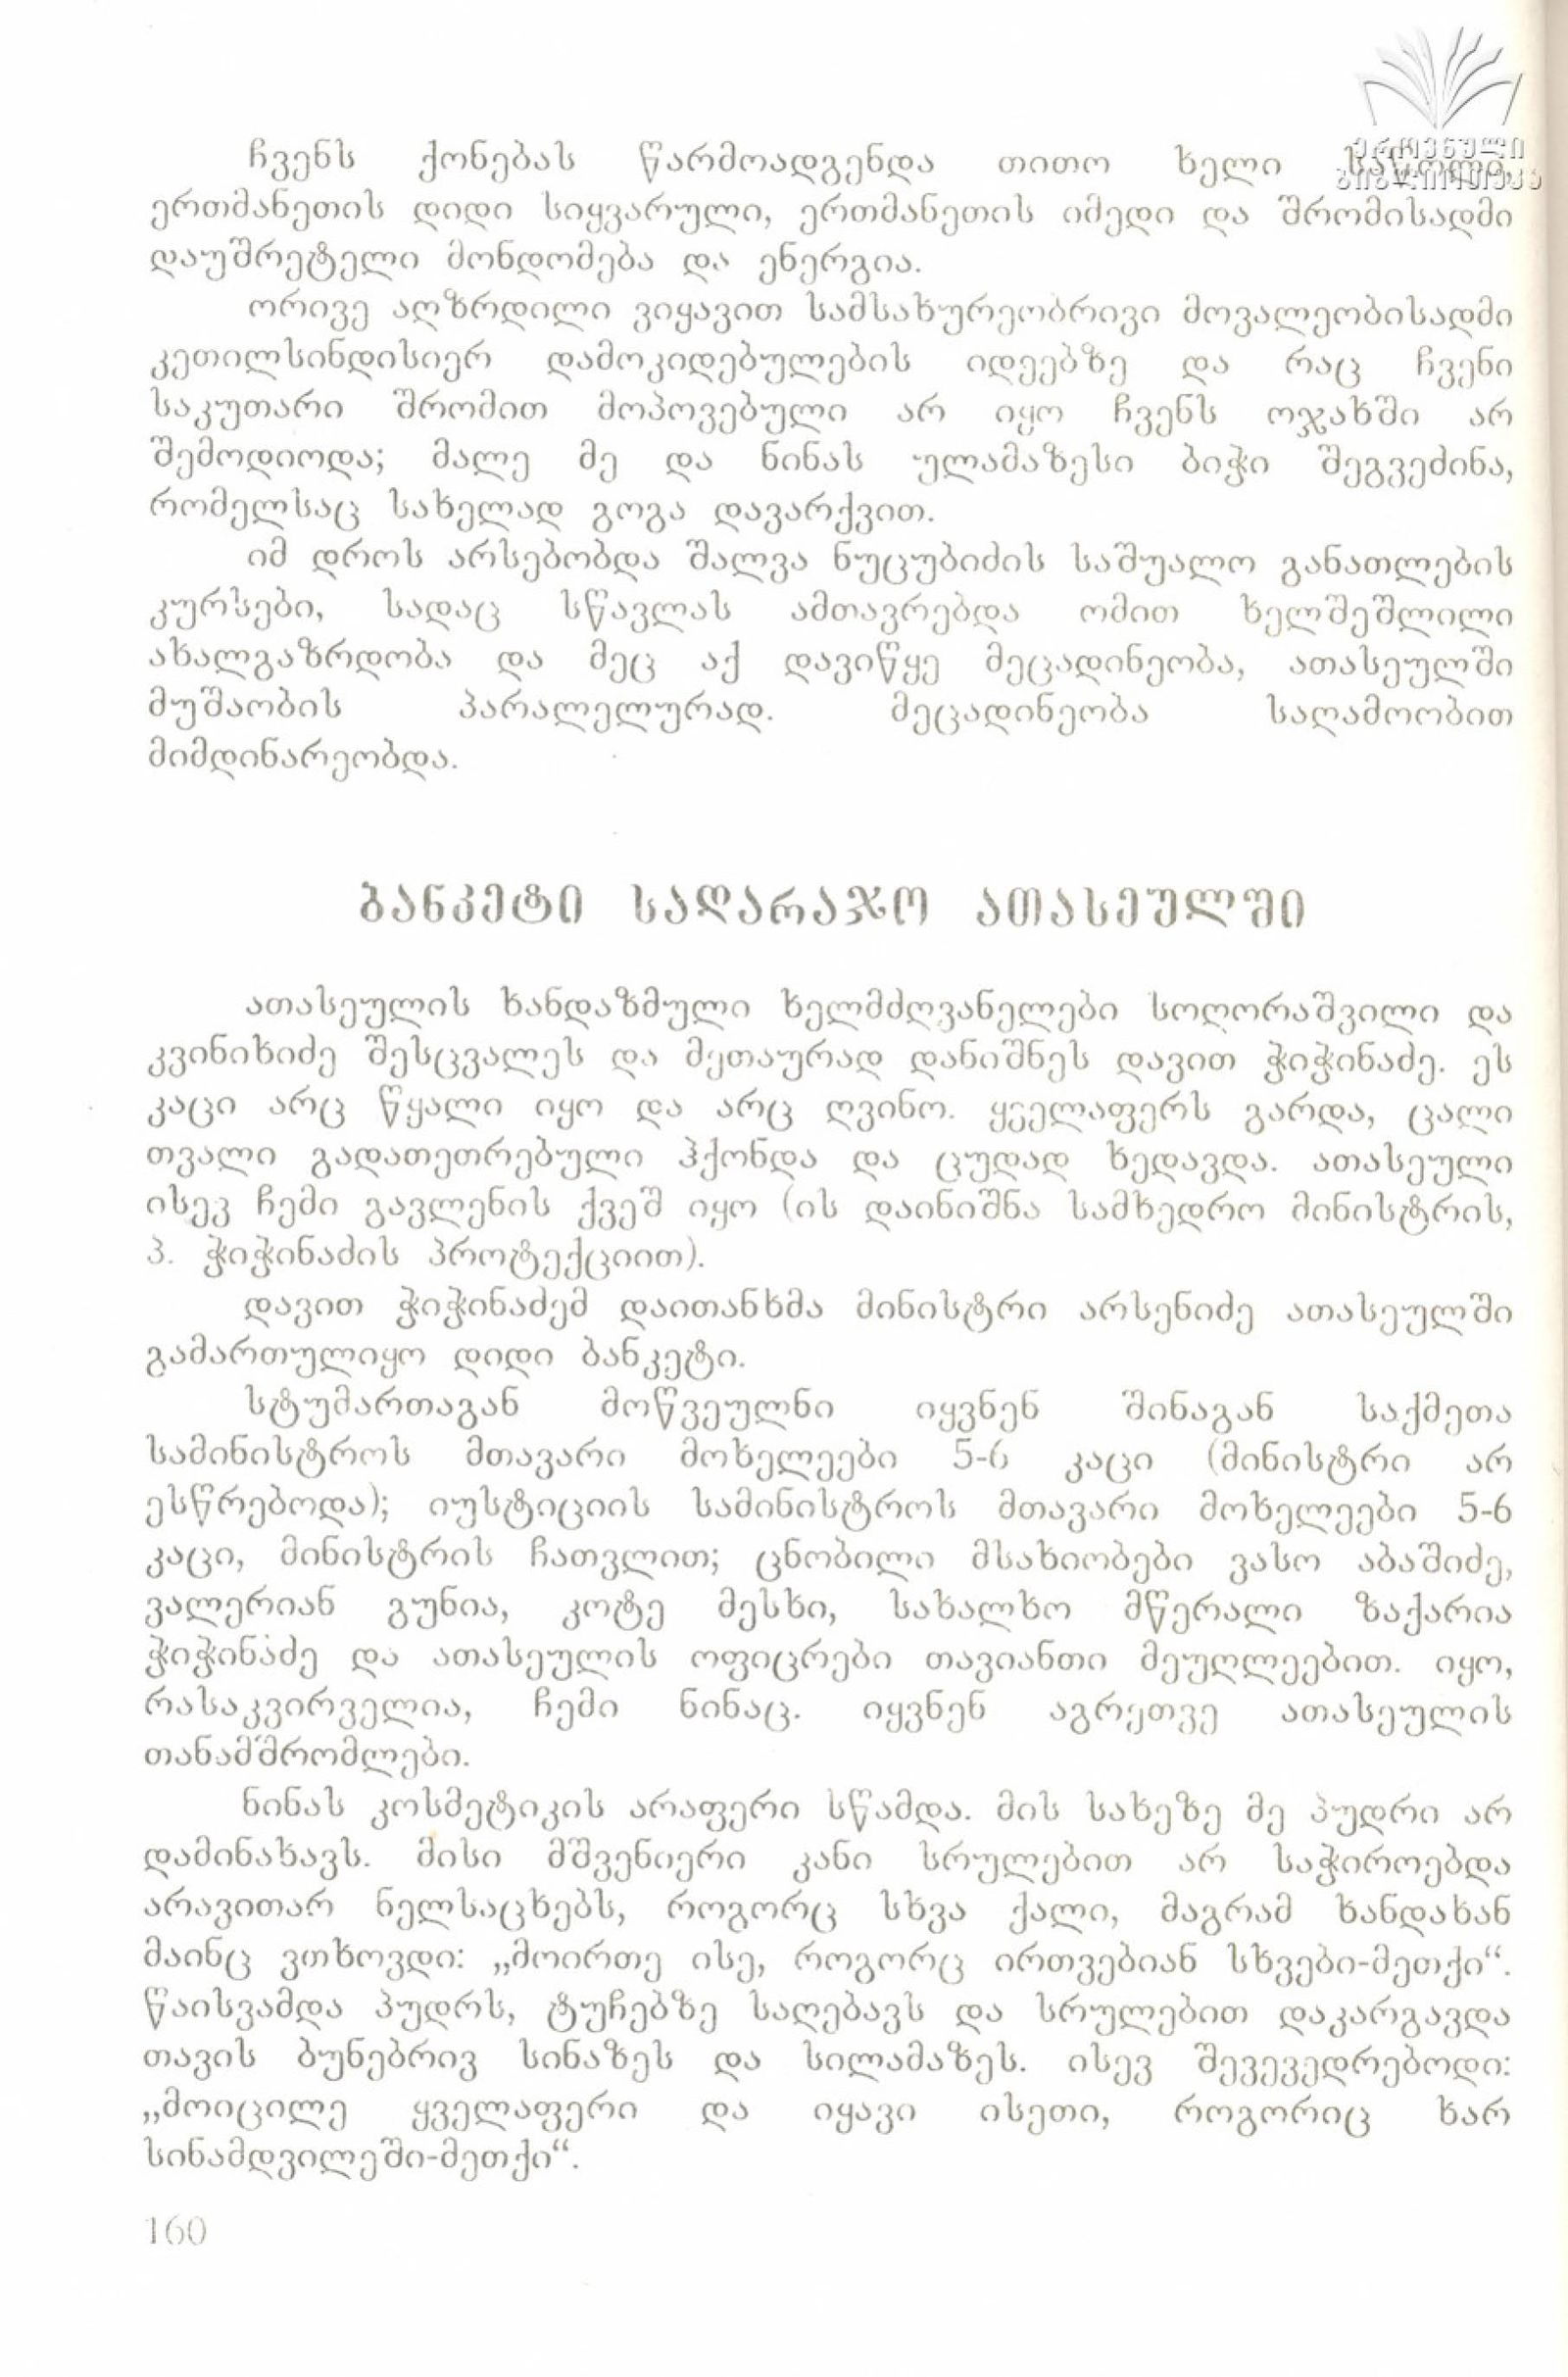 ეროვნული
ბიბლიოთეკა
ჩვენს ქონებას წარმოადგენდა თითო ხელი საწოლი,
ერთმანეთის დიდი სიყვარული, ერთმანეთის იმედი და შრომისადმი
დაუშრეტელი მონდომება და ენერგია.
ორივე აღზრდილი ვიყავით სამსახურეობრივი მოვალეობისადმი
კეთილსინდისიერ დამოკიდებულების იდეებზე და რაც ჩვენი
საკუთარი შრომით მოპოვებული არ იყო ჩვენს ოჯახში არ
შემოდიოდა; მალე მე და ნინას ულამაზესი ბიჭი შეგვეძინა,
რომელსაც სახელად გოგა დავარქვით.
იმ დროს არსებობდა შალვა ნუცუბიძის საშუალო განათლების
კურსები, სადაც სწავლას ამთავრებდა ომით ხელშეშლილი
ახალგაზრდობა და მეც აქ დავიწყე მეცადინეობა, ათასეულში
მუშაობის პარალელურად. მეცადინეობა საღამოობით
მიმდინარეობდა.
ბანკეტი საღარაჯო ათასეულში
ათასეულის ხანდაზმული ხელმძღვანელები სოღორაშვილი და
კვინიხიძე შესცვალეს და მეთაურად დანიშნეს დავით ჭიჭინაძე. ეს
კაცი არც წყალი იყო და არც ღვინო. ყველაფერს გარდა, ცალი
თვალი გადათეთრებული ჰქონდა და ცუდად ხედავდა. ათასეული
ისევ ჩემი გავლენის ქვეშ იყო (ის დაინიშნა სამხედრო მინისტრის,
პ. ჭიჭინაძის პროტექციით).
დავით ჭიჭინაძემ დაითანხმა მინისტრი არსენიძე ათასეულში
გამართულიყო დიდი ბანკეტი.
სტუმართაგან მოწვეულნი იყვნენ შინაგან საქმეთა
სამინისტროს მთავარი მოხელეები 5-6 კაცი (მინისტრი არ
ესწრებოდა); იუსტიციის სამინისტროს მთავარი მოხელეები 5-6
კაცი, მინისტრის ჩათვლით; ცნობილი მსახიობები ვასო აბაშიძე,
ვალერიან გუნია, კოტე მესხი, სახალხო მწერალი ზაქარია
ჭიჭინაძე და ათასეულის ოფიცრები თავიანთი მეუღლეებით. იყო,
რასაკვირველია, ჩემი ნინაც. იყვნენ აგრეთვე ათასეულის
თანამშრომლები.
ნინას კოსმეტიკის არაფერი სწამდა. მის სახეზე მე პუდრი არ
დამინახავს. მისი მშვენიერი კანი სრულებით არ საჭიროებდა
არავითარ ნელსაცხებს, როგორც სხვა ქალი, მაგრამ ხანდახან
მაინც ვთხოვდი: „მოირთე ისე, როგორც ირთვებიან სხვები-მეთქი“.
წაისვამდა პუდრს, ტუჩებზე საღებავს და სრულებით დაკარგავდა
თავის ბუნებრივ სინაზეს და სილამაზეს. ისევ შევევედრებოდი:
„მოიცილე ყველაფერი და იყავი ისეთი, როგორიც ხარ
სინამდვილეში-მეთქი“.
160